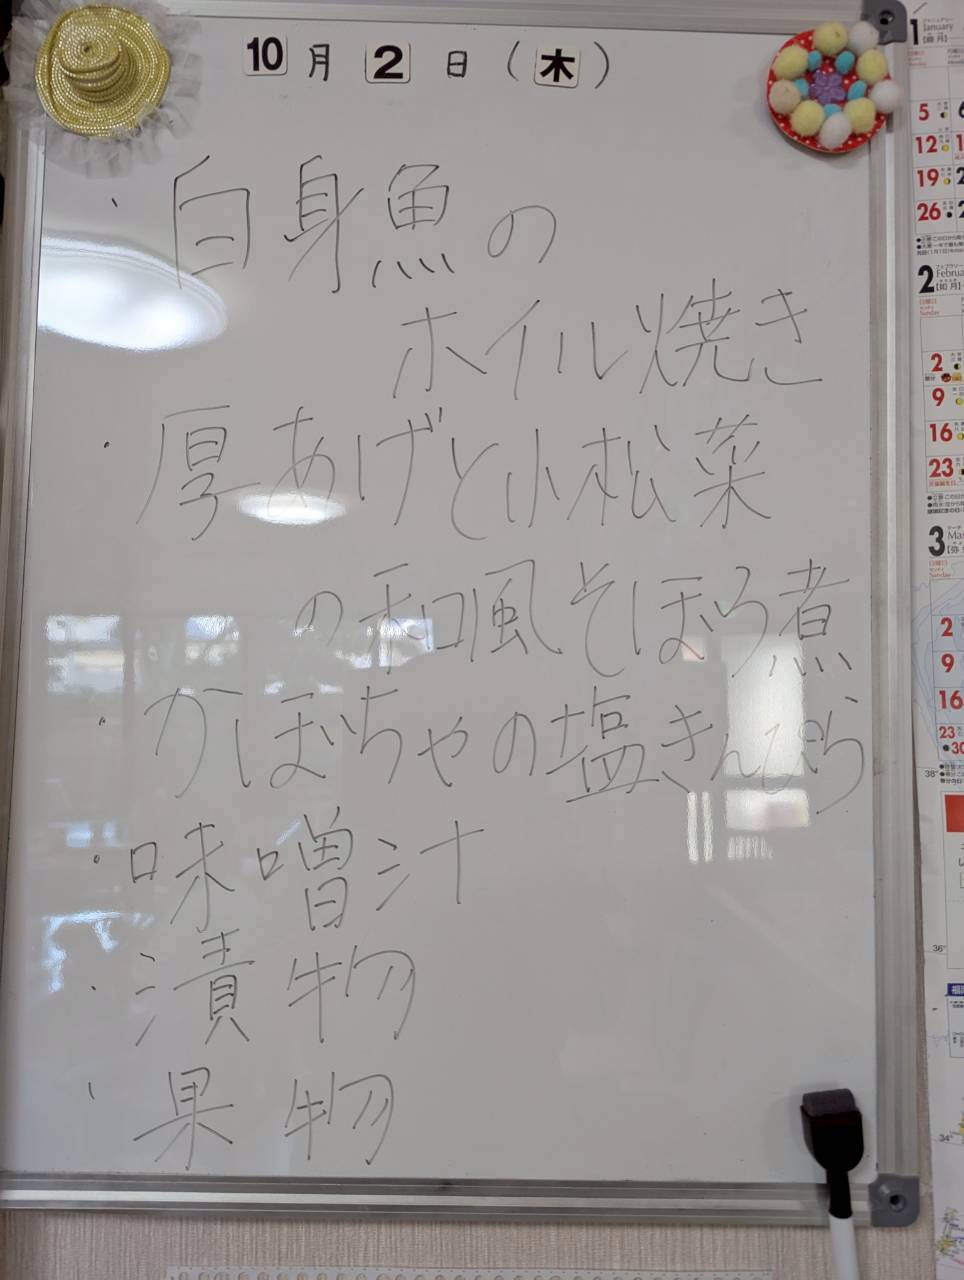 10月2日(木)
・白身魚の
ホイル焼き
・厚あげと小松菜
の和風そぼろ煮
・かぼちゃの塩きんぴら
・味噌汁
・漬物
・果物
1
January
5
12
19
26
2
2
9
16
23
3
2
9
16
23
30
38°
36°
34°